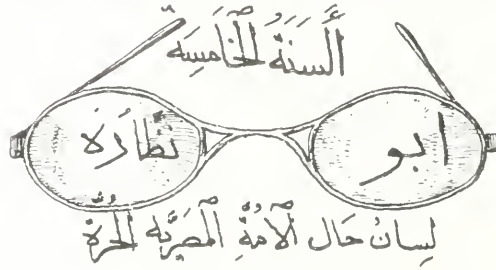 أَلسَنَةُ الخَامِسَة
ابو نظارَة
لِسانُ حَال الأُمةِ المَصِريَّه الحُرَّة